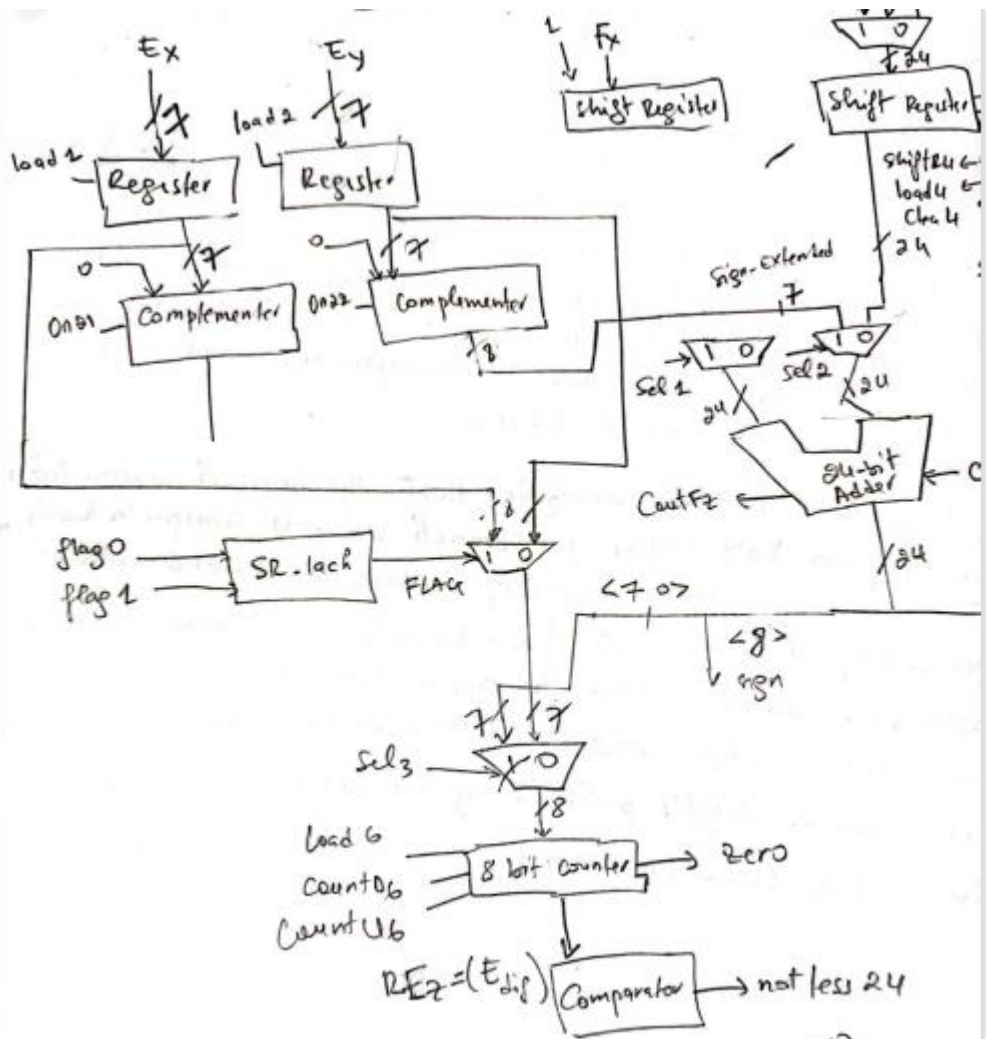 Ex
Ey
1
Fx
1 0
24
7
7
load 1
Register
load 2
Register
Shift Register
Shift Register
shiftR4
load 4
24
7
7
0
0
On21
Complementer
On22
Complementer
8
Sign-Extended
7
1 0
1 0
Sel 1
Sel 2
24
24
24-bit
Adder
C
CoutFz
24
8
flag 0
flag 1
SR-lach
FLAG
1 0
<7 0>
<8>
sign
7
7
Sel3
1 0
8
load 6
CountD6
CountU6
8 bit counter
Zero
REz=(Edif)
Comparator
not less 24